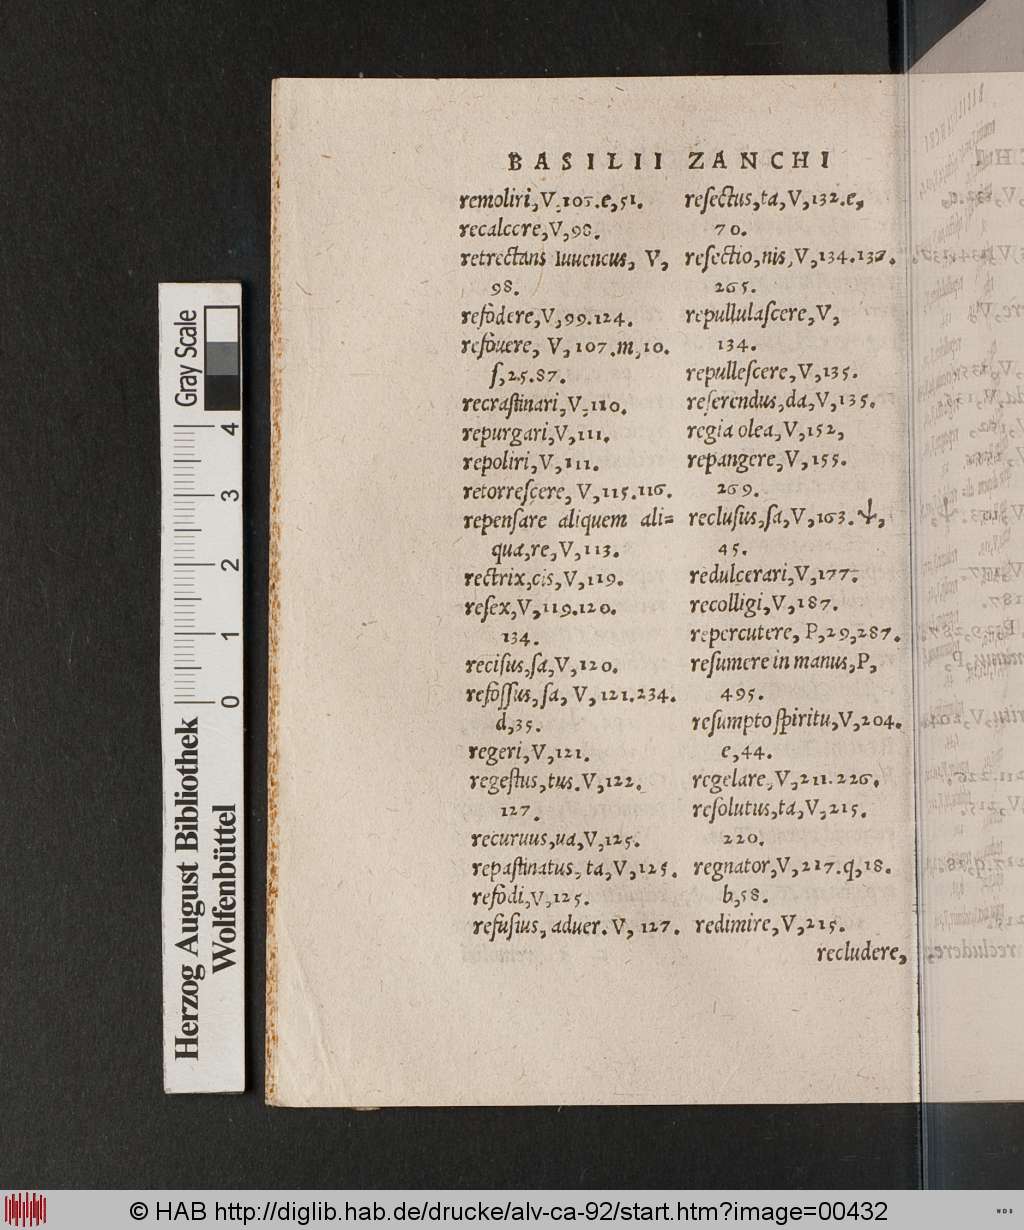 BASILII ZANCHI
remoliri, V, 105. e, 51.
recalcere, V, 98.
retrectans Iuuencus, V,
98.
refodere, V, 99. 124.
refouere, V, 107. m, 10.
ſ, 25. 87.
recraſtinari, V, 110.
repurgari, V, 111.
repoliri, V, 111.
retorreſcere, V, 115. 116.
repenſare aliquem ali=
qua, re, V, 113.
rectrix, cis, V, 119.
reſex, V, 119. 120.
134.
reciſus, ſa, V, 120.
refoſſus, ſa, V, 121. 234.
d, 35.
regeri, V, 121.
regeſtus, tus. V, 122.
127.
recuruus, ua, V, 125.
repaſtinatus, ta, V, 125.
refodi, V, 125.
refuſius, aduer. V, 127.
reſectus, ta, V, 132. e,
70.
reſectio, nis, V, 134. 137.
265.
repullulaſcere, V,
134.
repulleſcere, V, 135.
referendus, da, V, 135.
regia olea, V, 152,
repangere, V, 155.
269.
recluſus, ſa, V, 163. Ψ,
45.
redulcerari, V, 177.
recolligi, V, 187.
repercutere, P, 29, 287.
reſumere in manus, P,
495.
reſumpto ſpiritu, V, 204.
e, 44.
regelare, V, 211. 226.
reſolutus, ta, V, 215.
220.
regnator, V, 217. q, 18.
b, 58.
redimire, V, 215.
recludere,
Gray Scale
4
3
2
1
0
Herzog August Bibliothek
Wolfenbüttel
© HAB http://diglib.hab.de/drucke/alv-ca-92/start.htm?image=00432